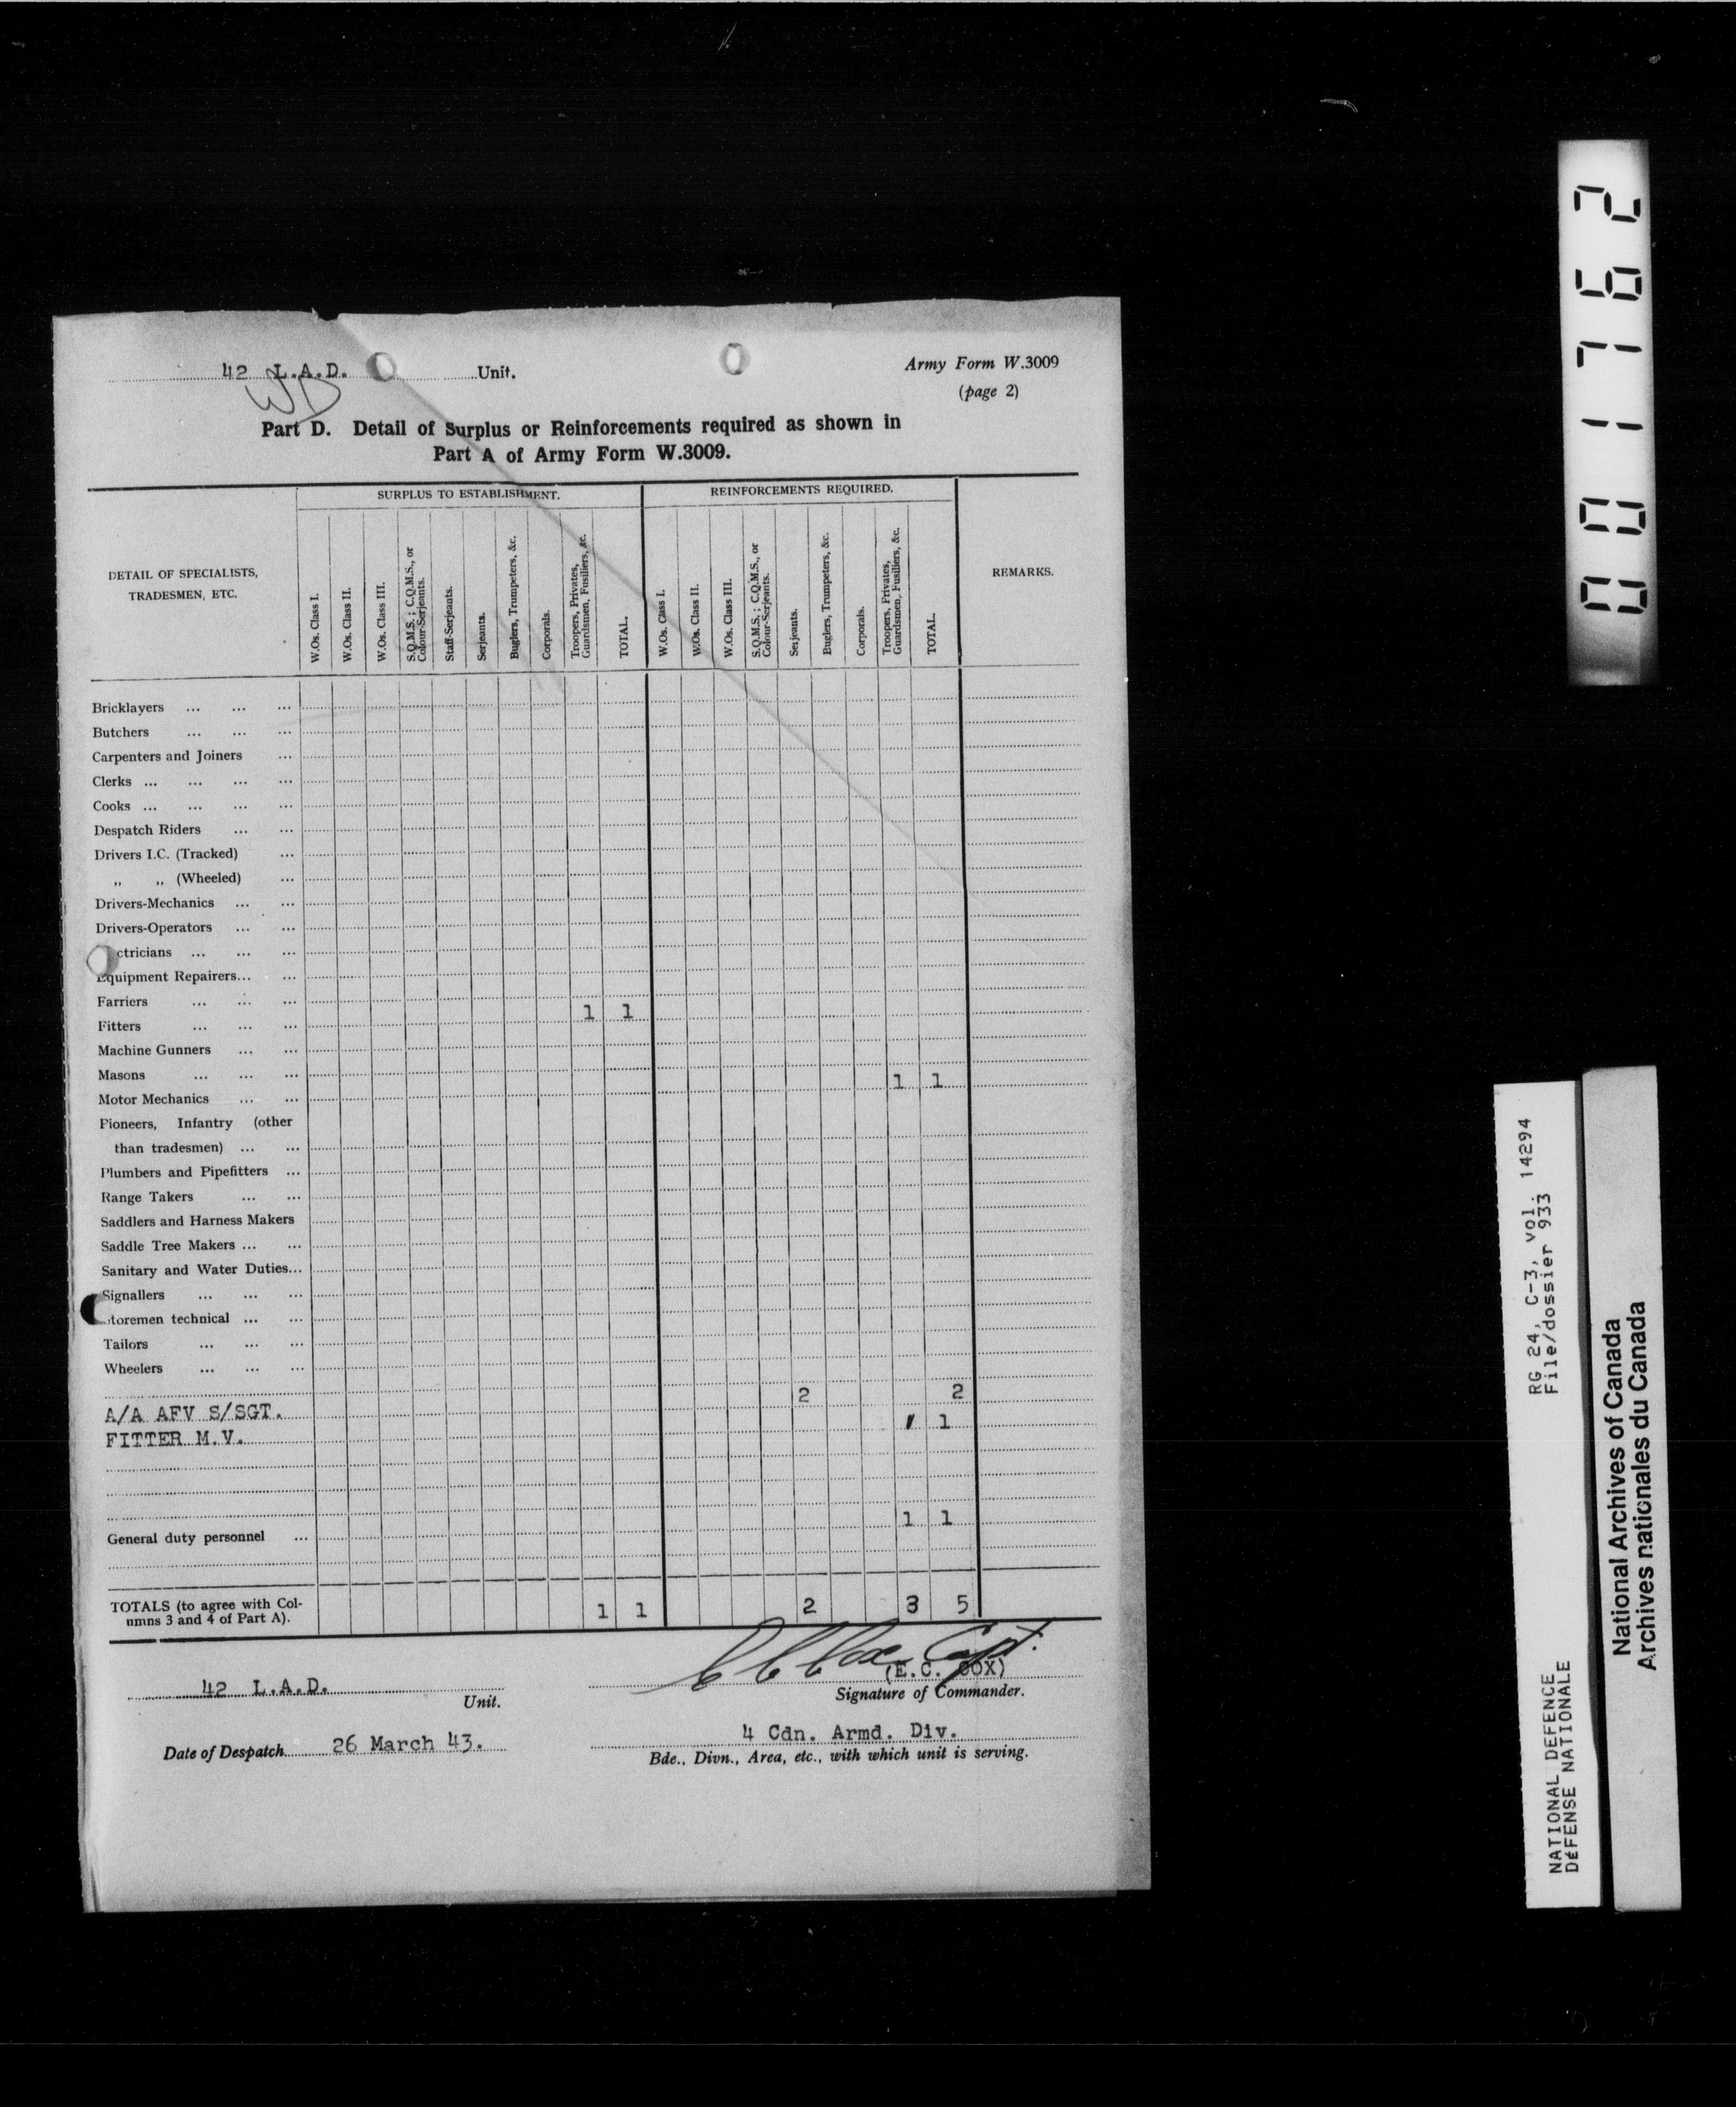 42 L.A.D. Unit.
Army Form W.3009
(page 2)
WD
Part D. Detail of Surplus or Reinforcements required as shown in
Part A of Army Form W.3009.
DETAIL OF SPECIALISTS,
TRADESMEN, ETC.
SURPLUS TO ESTABLISHMENT.
W.Os. Class I.
W.Os. Class II.
W.Os. Class III.
S.Q.M.S.; C.Q.M.S., or
Colour-Serjeants.
Staff-Serjeants.
Serjeants.
Buglers, Trumpeters, &c.
Corporals.
Troopers, Privates,
Guardsmen, Fusiliers, &c.
TOTAL.
REINFORCEMENTS REQUIRED.
W.Os. Class I.
W.Os. Class II.
W.Os. Class III.
S.Q.M.S.; C.Q.M.S., or
Colour-Serjeants.
Serjeants.
Buglers, Trumpeters, &c.
Corporals.
Troopers, Privates,
Guardsmen, Fusiliers, &c.
TOTAL.
REMARKS.
Bricklayers ... ... ...
Butchers ... ... ...
Carpenters and Joiners ...
Clerks ... ... ... ...
Cooks ... ... ... ...
Despatch Riders ... ...
Drivers I.C. (Tracked) ...
„ „ (Wheeled) ...
Drivers-Mechanics ... ...
Drivers-Operators ... ...
ctricians ... ... ...
Equipment Repairers... ...
Farriers ... ... ...
Fitters ... ... ... 1 1
Machine Gunners ... ...
Masons ... ... ...
Motor Mechanics ... ... 1 1
Pioneers, Infantry (other
than tradesmen) ... ...
Plumbers and Pipefitters ...
Range Takers ... ...
Saddlers and Harness Makers
Saddle Tree Makers ... ...
Sanitary and Water Duties...
Signallers ... ... ...
toremen technical ... ...
Tailors ... ... ...
Wheelers ... ... ...
A/A AFV S/SGT. 2 2
FITTER M.V. 1 1
General duty personnel ... 1 1
TOTALS (to agree with Col-
umns 3 and 4 of Part A). 1 1 2 3 5
E C Cox Capt.
(E.C. COX)
Signature of Commander.
42 L.A.D.
Unit.
Date of Despatch 26 March 43.
4 Cdn. Armd. Div.
Bde., Divn., Area, etc., with which unit is serving.
001762
RG 24, C-3, vol. 14294
File/dossier 933
NATIONAL DEFENCE
DÉFENSE NATIONALE
National Archives of Canada
Archives nationales du Canada